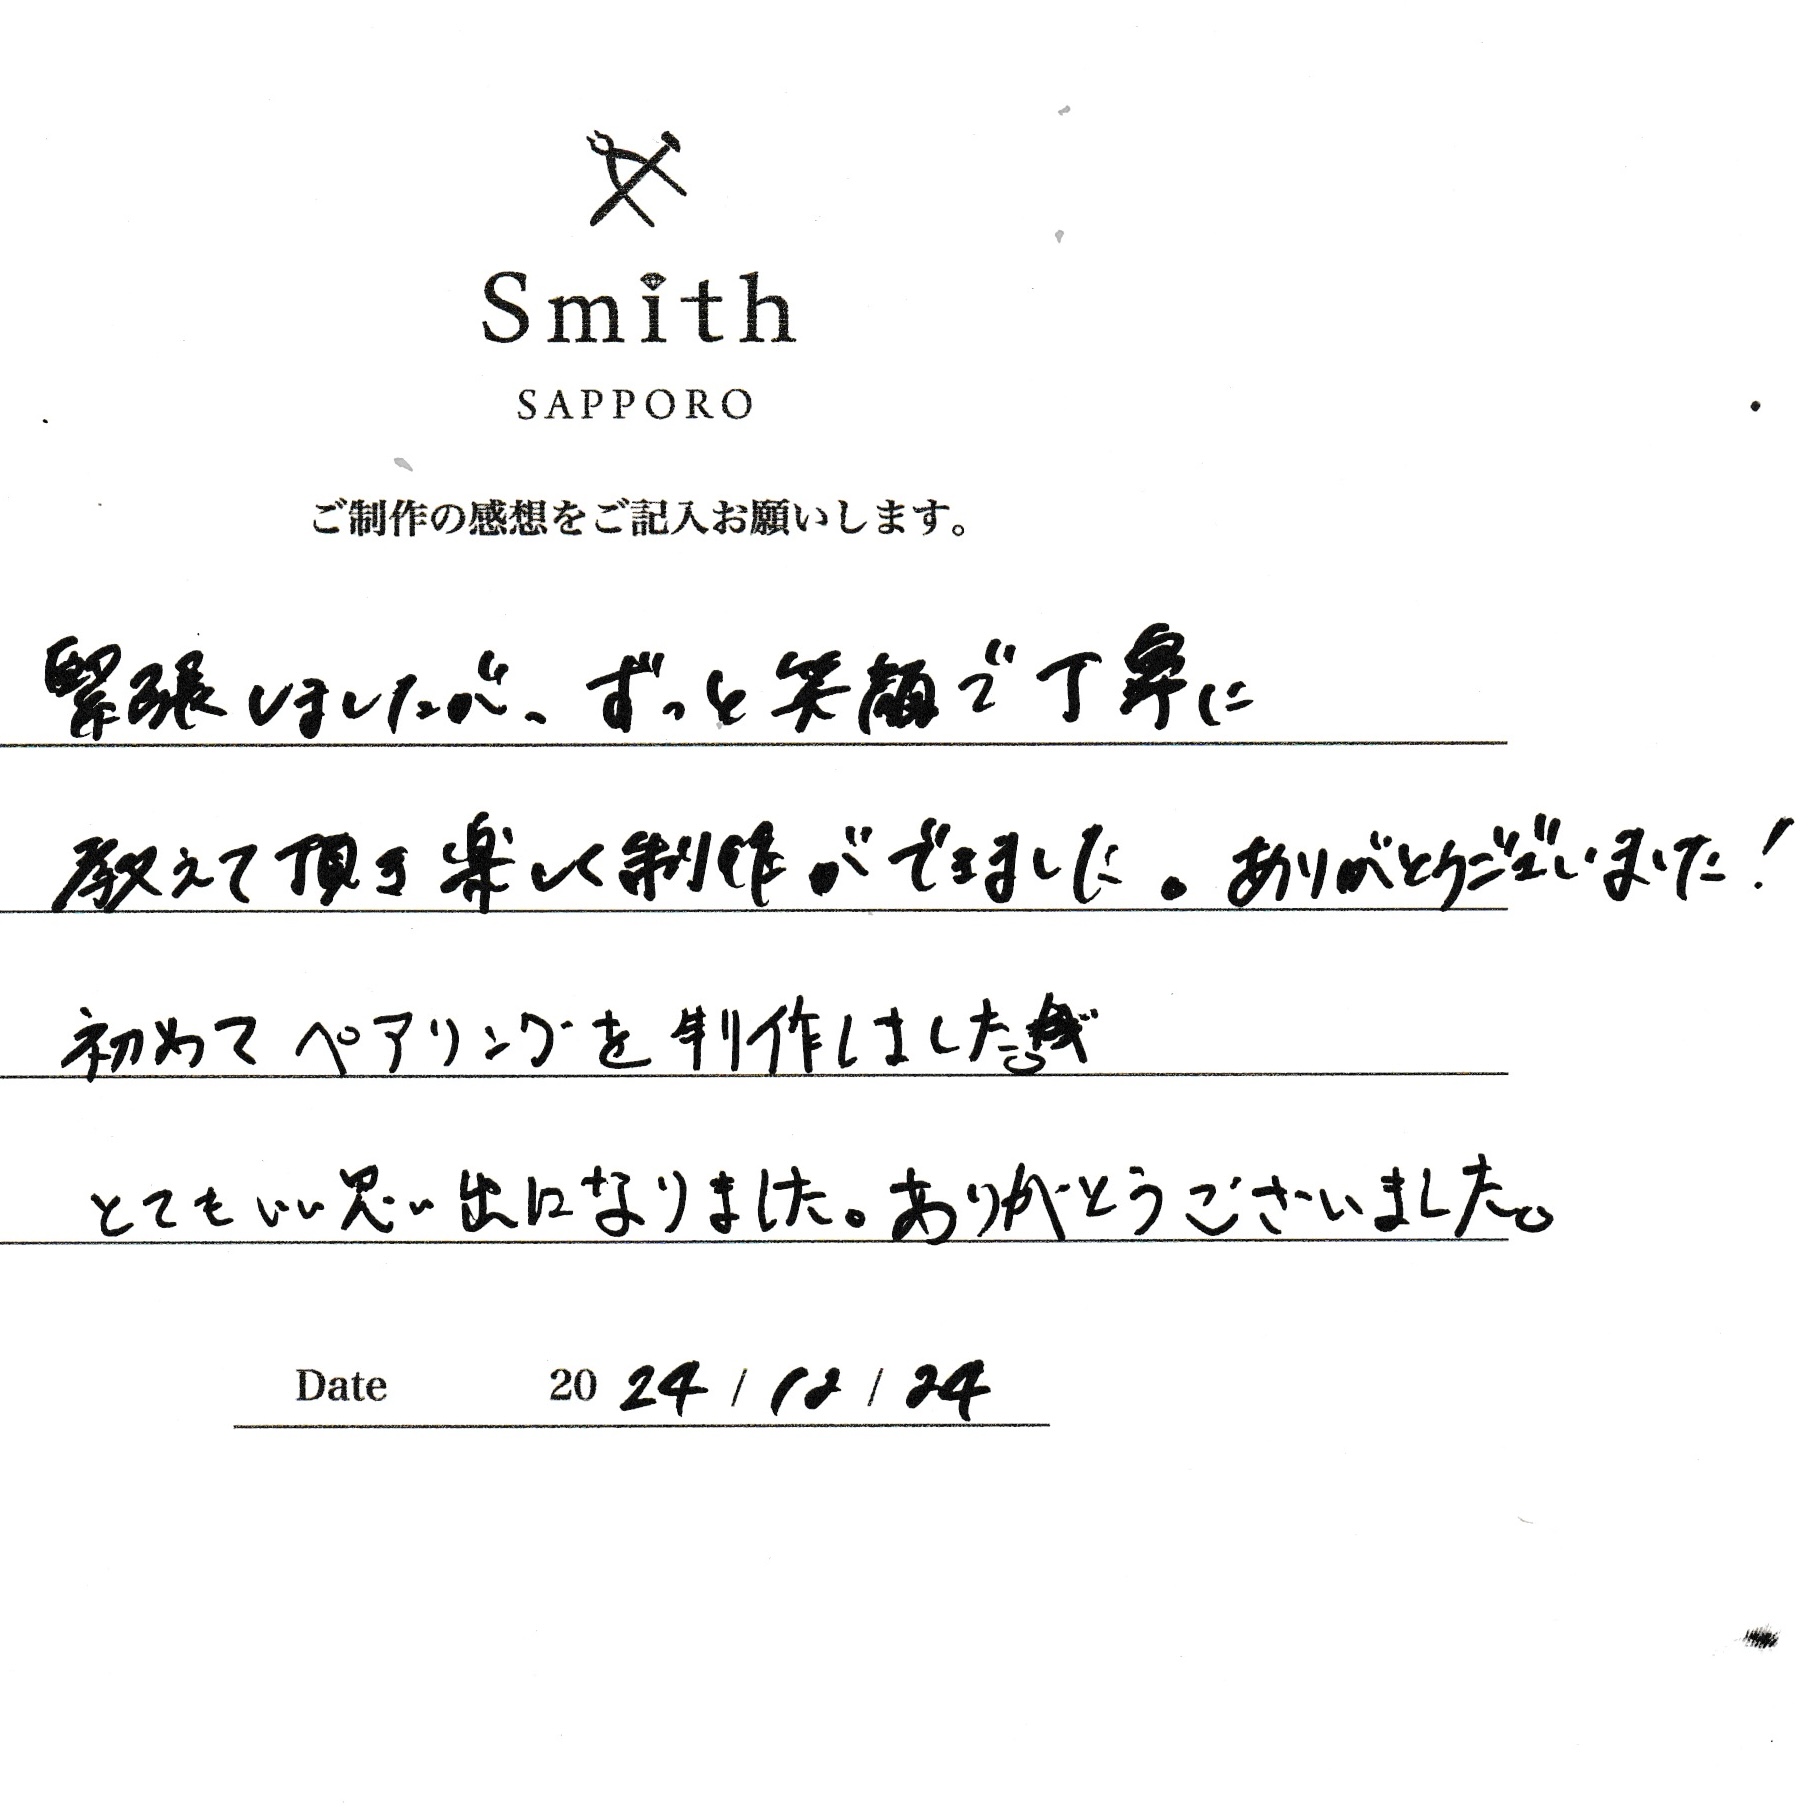 Smith
SAPPORO
ご制作の感想をご記入お願いします。
緊張しましたが、ずっと笑顔で丁寧に
教えて頂き楽しく制作ができました。ありがとうございました!
初めてペアリングを制作しました。
とてもいい思い出になりました。ありがとうございました。
Date 2024/12/24